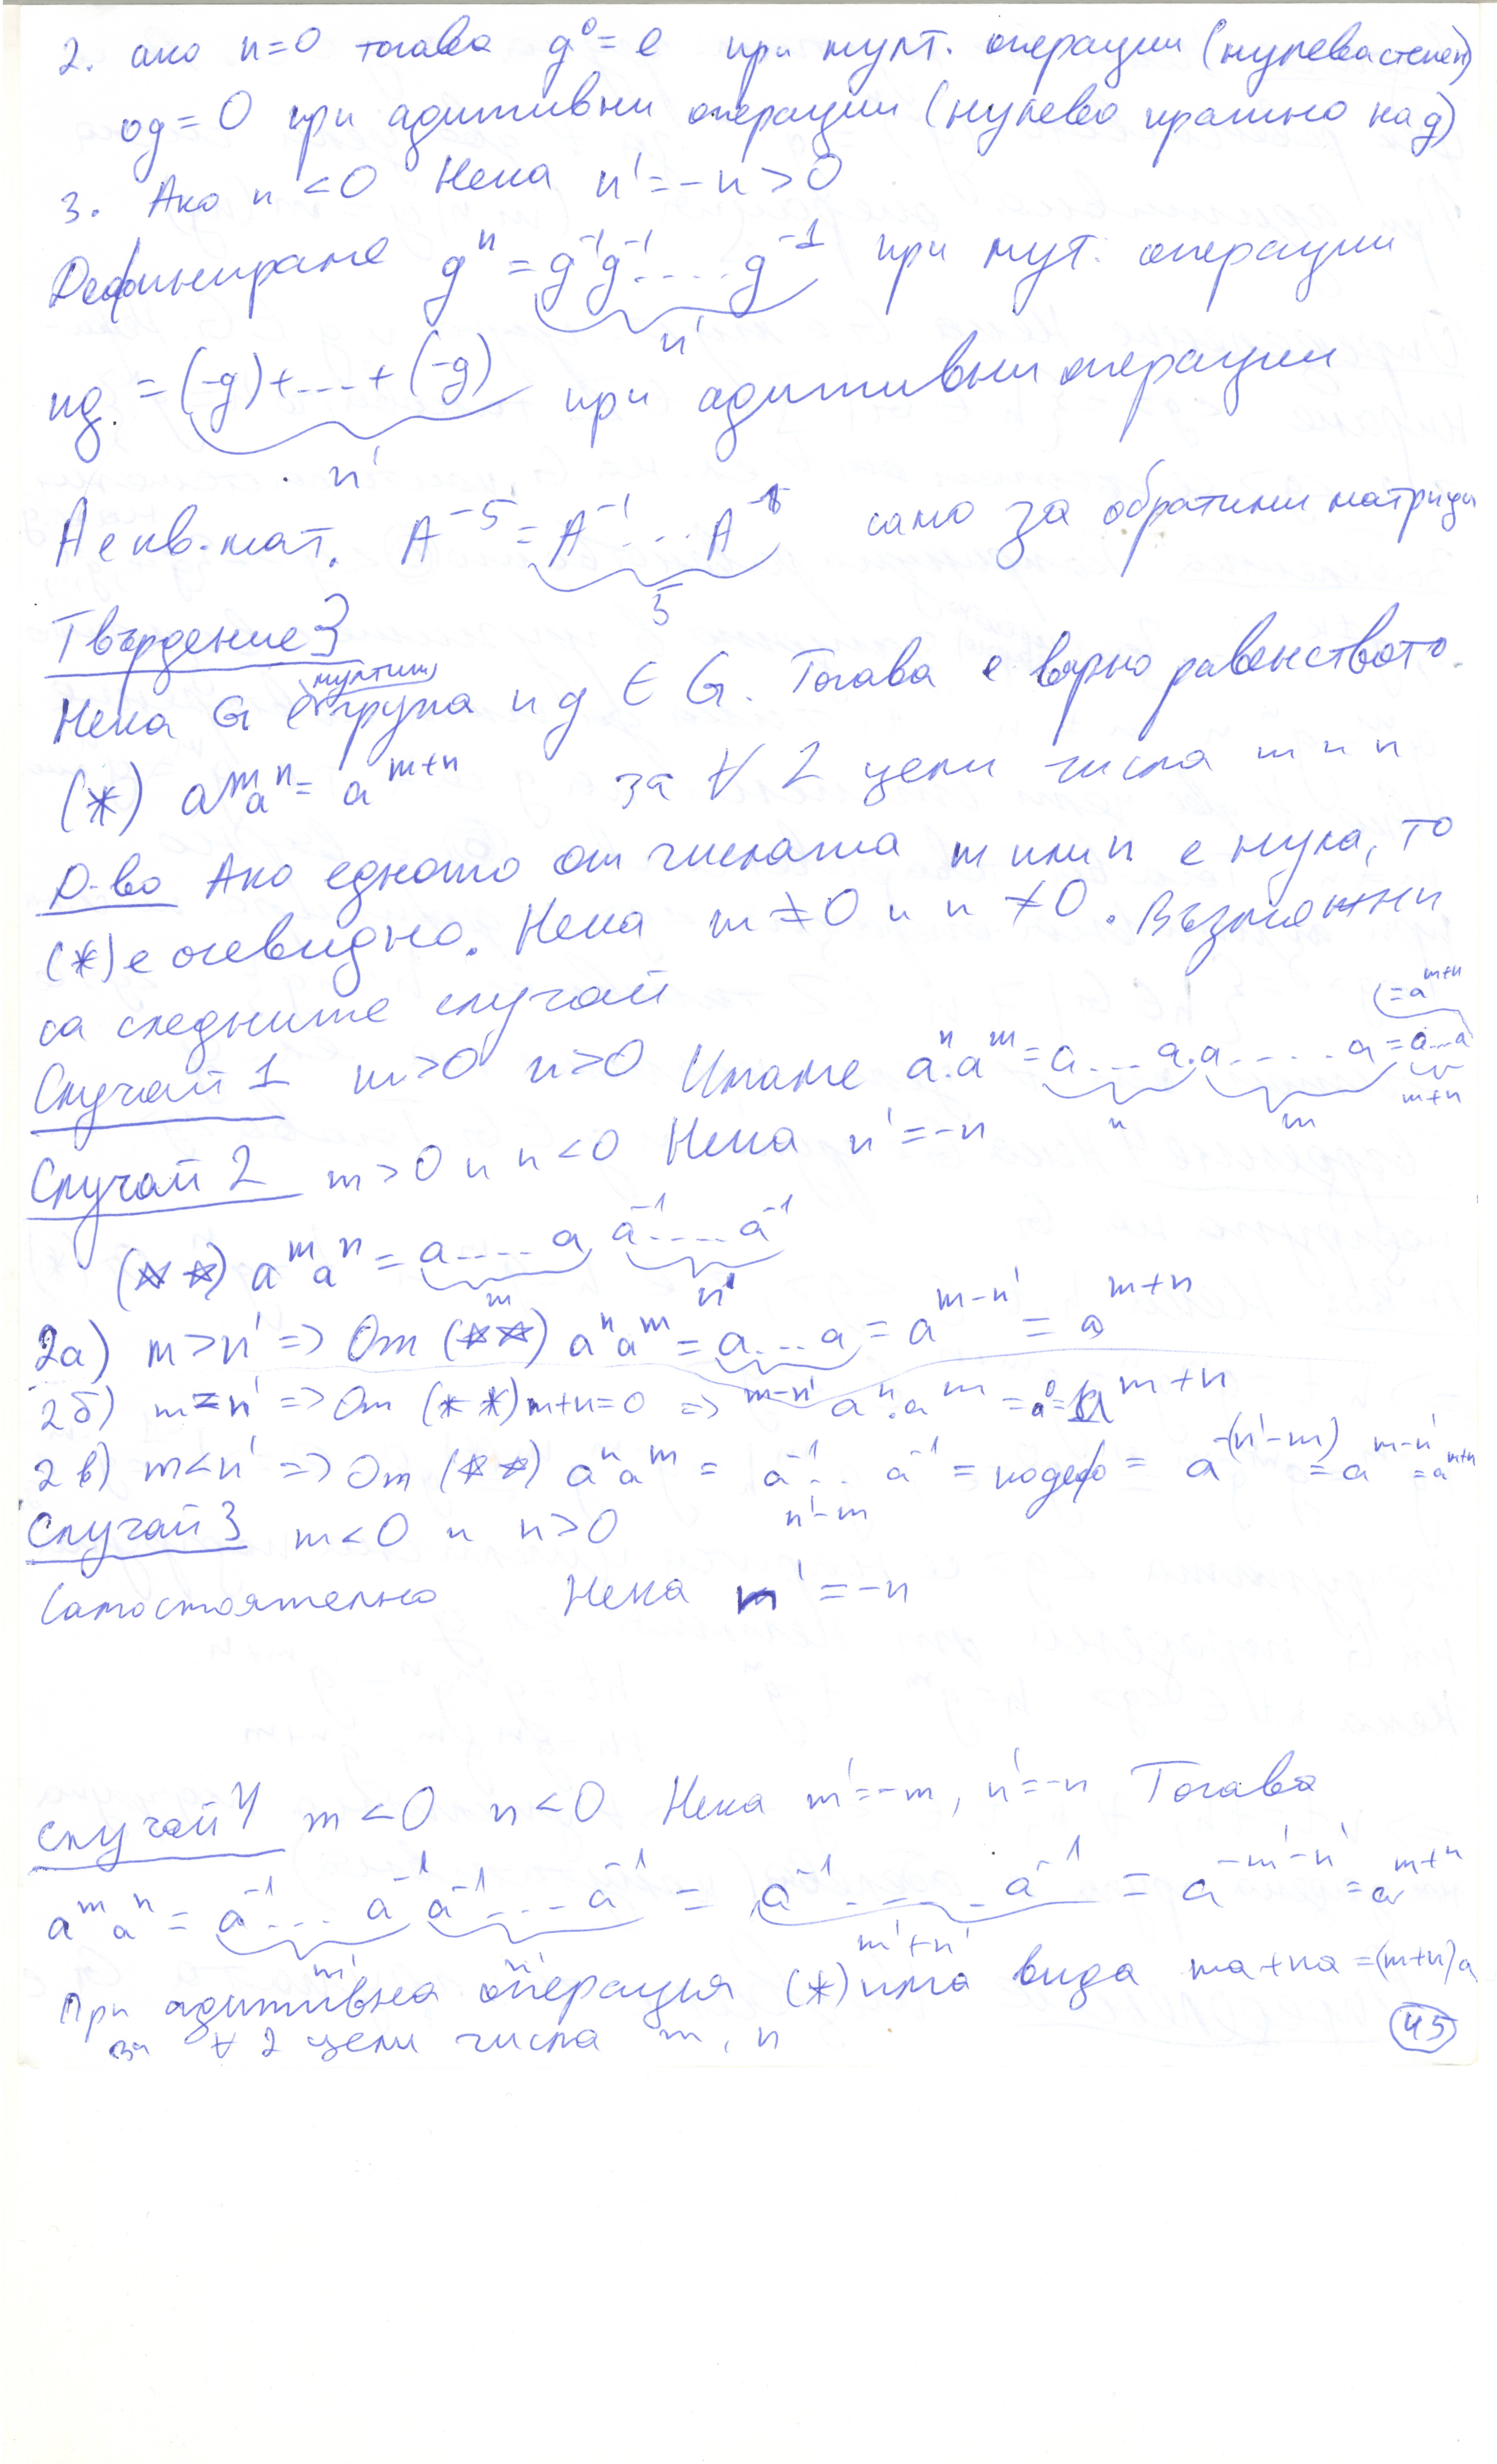 2. ако n=0 тогава g⁰ = e при мулт. операции (нулева степен)
0g = 0 при адитивни операции (нулево кратно на g)
3. Ако n < 0 Нека n' = -n > 0
Дефинираме gⁿ = g⁻¹g⁻¹....g⁻¹ при мут. операции
n'
ng = (-g)+...+(-g) при адитивни операции
n'
A е кв. мат. A⁻⁵ = A⁻¹...A⁻¹ само за обратими матрици
5
Твърдение 3
мултип
Нека G е група и g ∈ G. Тогава е вярно равенството
(*) aᵐaⁿ = aᵐ⁺ⁿ за ∀ 2 цели числа m и n
Д-во Ако едното от числата m или n е нула, то
(*) е очевидно. Нека m ≠ 0 и n ≠ 0. Възможни
са следните случай
Случай 1 m>0 n>0 Имаме aⁿ.aᵐ = a...a.a....a = a...a (= aᵐ⁺ⁿ
n m m+n
Случай 2 m>0 и n<0 Нека n' = -n
(**) aᵐaⁿ = a....a a⁻¹....a⁻¹
m n'
2а) m>n' => От (**) aⁿaᵐ = a...a = aᵐ⁻ⁿ' = aᵐ⁺ⁿ
m-n'
2б) m=n' => От (**) m+n=0 => aⁿ.aᵐ = a⁰ = aᵐ⁺ⁿ
2в) m<n' => От (**) aⁿaᵐ = a⁻¹...a⁻¹ = по деф = a⁻⁽ⁿ'⁻ᵐ⁾ = aᵐ⁻ⁿ' = aᵐ⁺ⁿ
n'-m
Случай 3 m<0 и n>0
Самостоятелно Нека m' = -n
Случай 4 m<0 n<0 Нека m'=-m, n'=-n Тогава
aᵐaⁿ = a⁻¹...a⁻¹a⁻¹...a⁻¹ = a⁻¹....a⁻¹ = a⁻ᵐ'⁻ⁿ' = aᵐ⁺ⁿ
m' n' m'+n'
При адитивна операция (*) има вида ma+na=(m+n)a
за ∀ 2 цели числа m, n
45